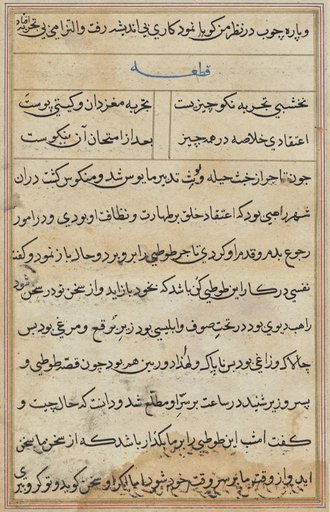 وپاره چوب در نظر من کویا نمود کاری بی اندیشه رفت والزامی بی تجربه افتاد
قطعه
نخشبی تجربه نکو چیزیست
تجربه مغز دان و کیتی پوست
اعتقادی خلاصه در همه چیز
بعد از امتحان آن نیکوست
جون تاجر از خبث حیله و لوث تدبیر مایوس شد و منکوس کشت در ان
شهر راهبی بود که اعتقاد خلق بر طهارت و نظافت او بودی و در امور
رجوع بدم و قدم او کردی تاجر طوطی را بر وی برد و حال باز نمود و کفت
نفسی در کار این طوطی کن باشد که بخود باز اید و از سخن خود در سخن شود
راهب دیوی بود در تحت صوف و ابلیسی بود زیر برقع و مرغی بود بس
چالاک و زاغی بود بس ناپاک و جون قصه طوطی و
پسر وزیر شنید در ساعت بر سر او مطلع شد و دانست که حال چیست و
کفت امشب این طوطی را بر ما بکذار باشد که از سخن ما سخن
اید و از وقت ما بر سر وقت خود شود با ما یکی او سخن کوید و تو کر وی